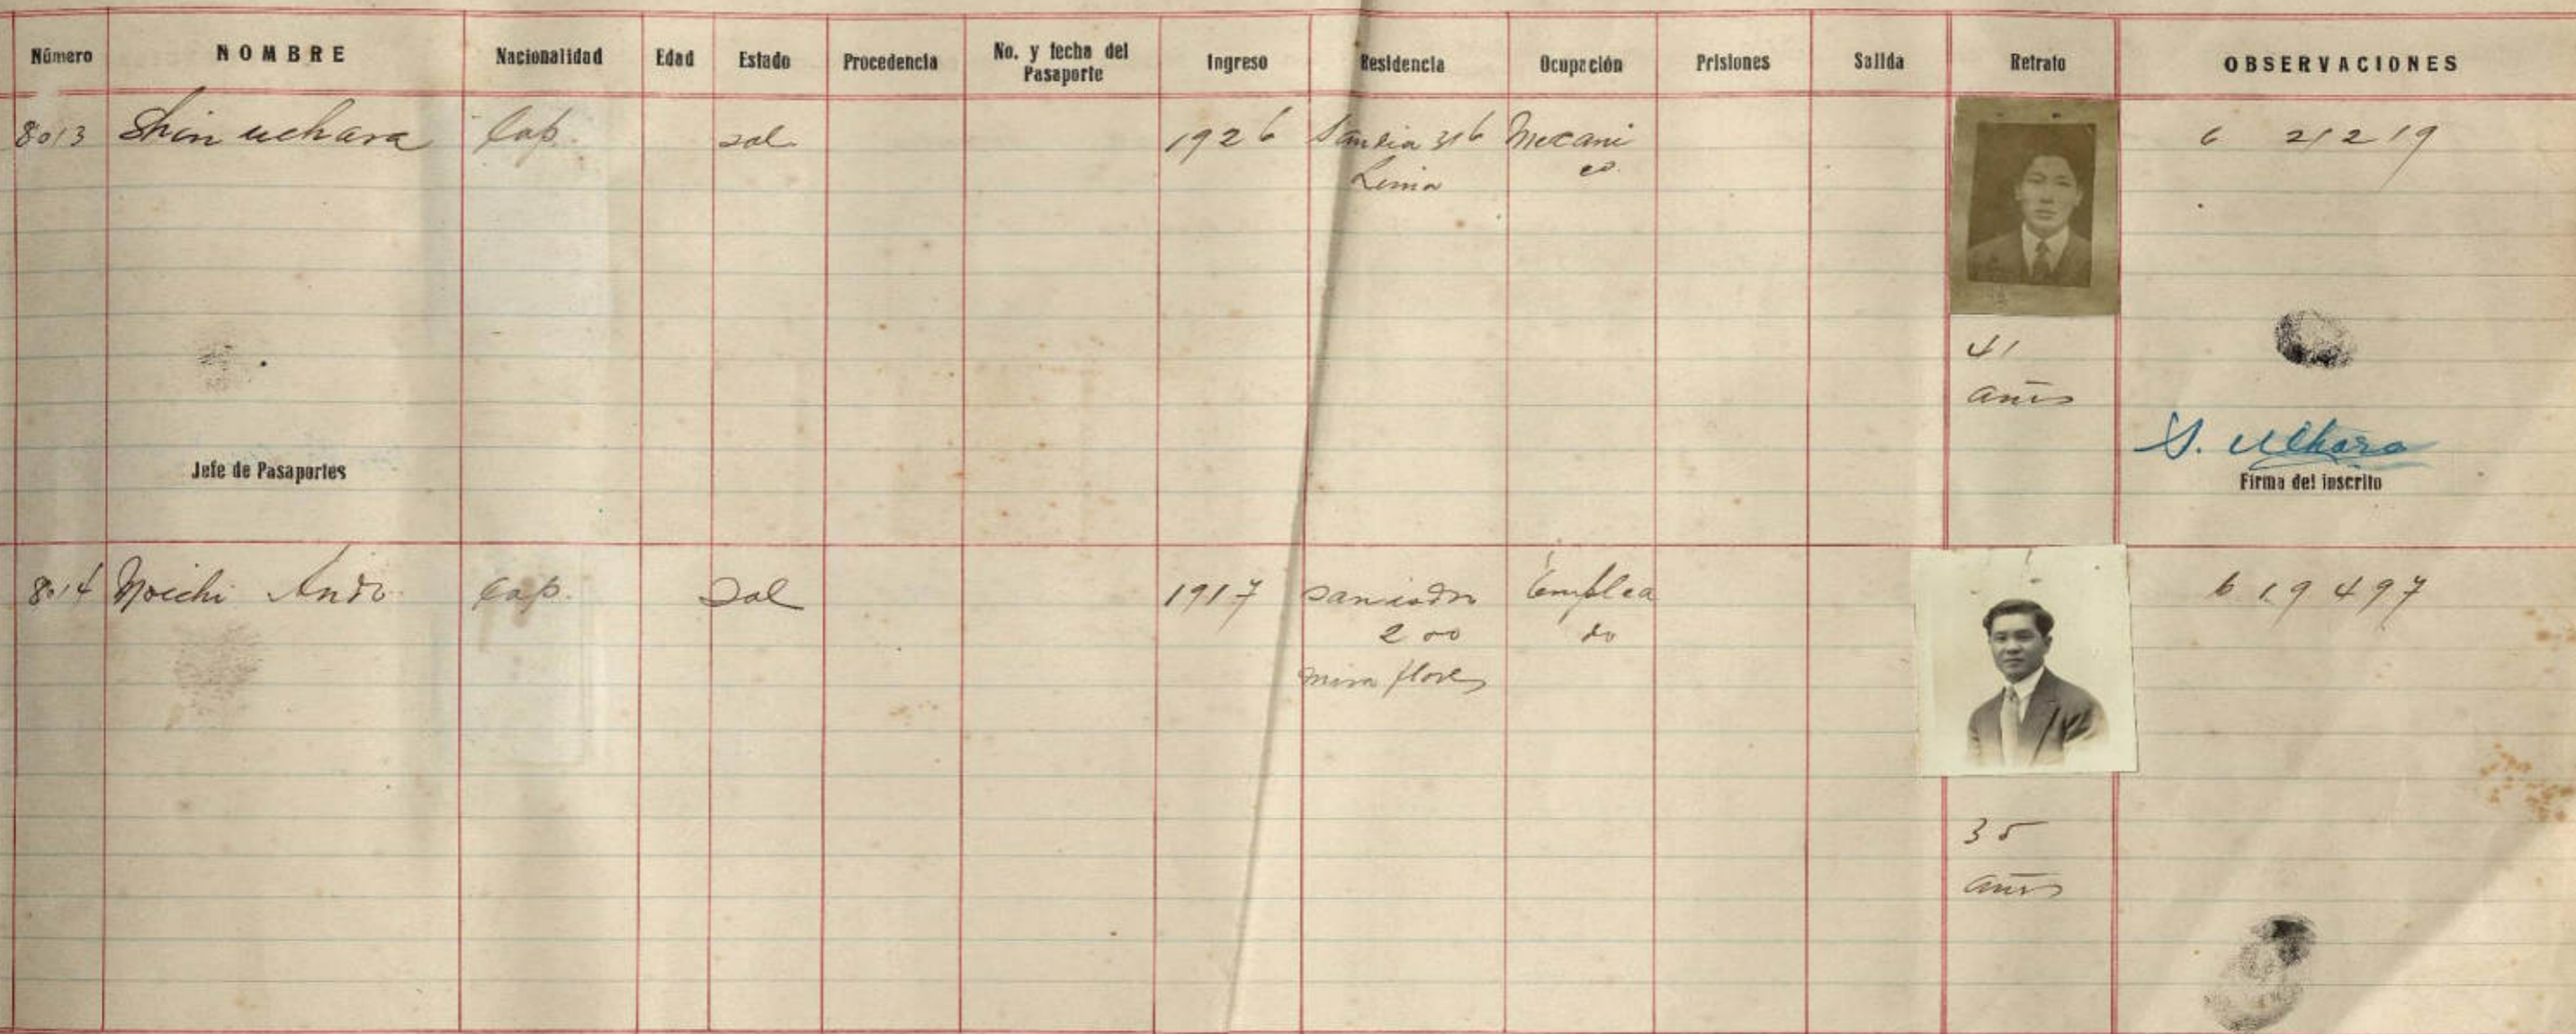 Número NOMBRE Nacionalidad Edad Estado Procedencia No. y fecha del Pasaporte Ingreso Residencia Ocupación Prisiones Salida Retrato OBSERVACIONES
8013 Shin uehara Jap. sol 1926 Sandia 316 Mecani 6 21219
Lima co.
41
años
S. Uehara
Jefe de Pasaportes Firma del inscrito
8014 Moichi Ando Jap. Sol 1917 san isidro Emplea 6 19497
200 do
mira flores
35
años